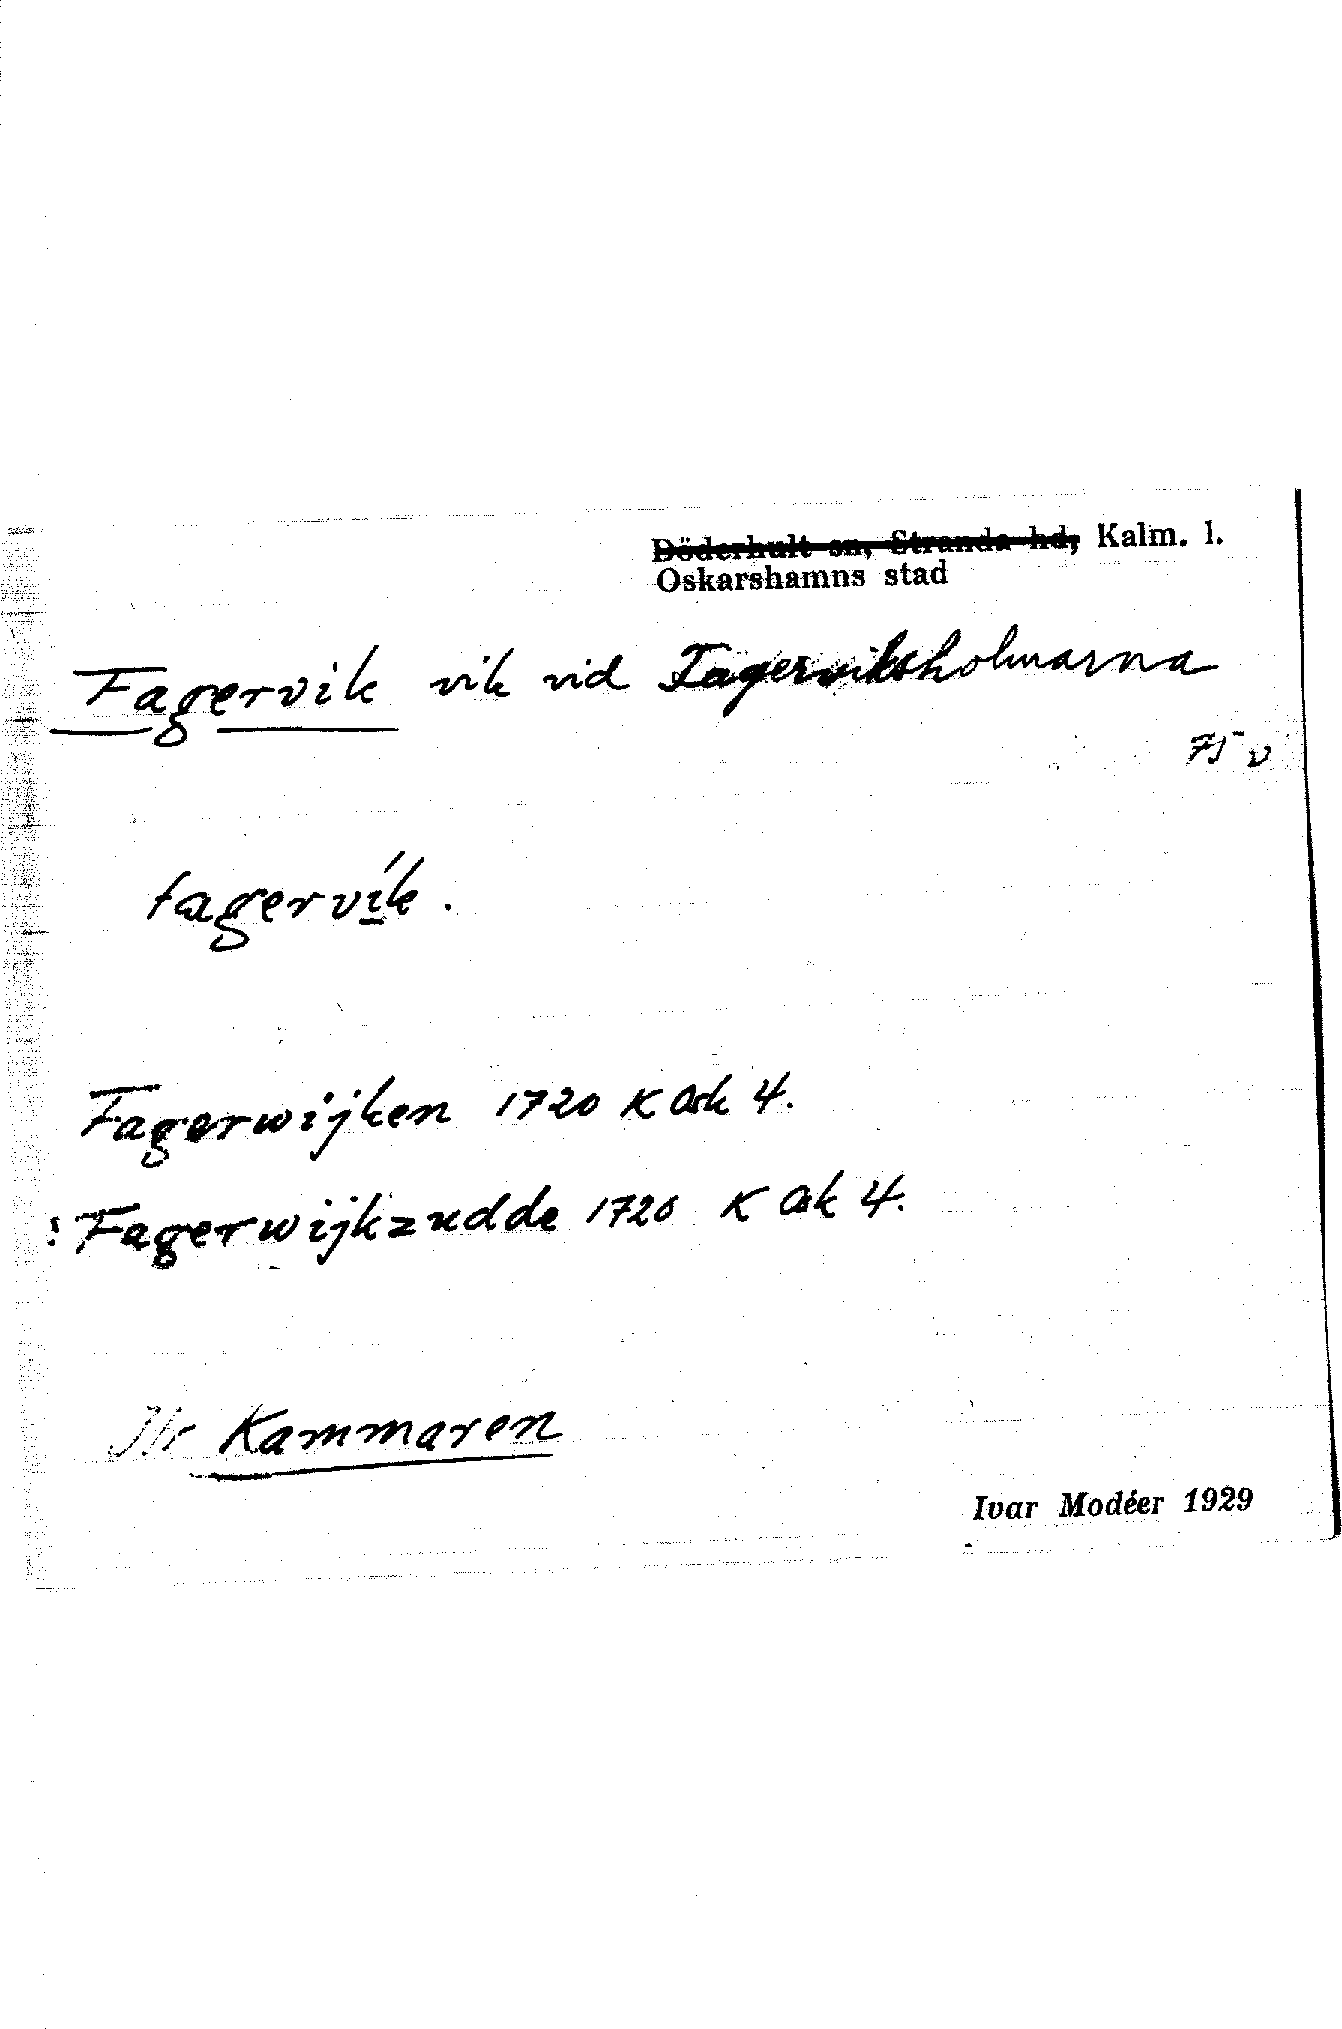 Döderhult sn, Stranda hd, Kalm. l.
Oskarshamns stad
Fagervik vik vid Fagerviksholmarna
75 v
fagervík.
Fagerwijken 1720 K Ask 4.
! Fagerwijkzudde 1720 K Ask 4.
Kammaren
Ivar Modéer 1929